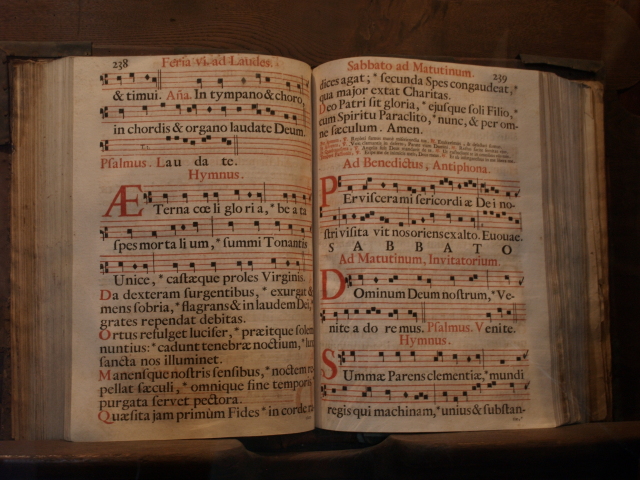 238
Feria vi. ad Laudes.
& timui. Aña. In tympano & choro,
in chordis & organo laudate Deum.
T.i.
Psalmus. Lau da te.
Hymnus.
Æ Terna cœ li glo ri a, * be a ta
spes morta li um, * summi Tonantis
Unice, * castæque proles Virginis.
Da dexteram surgentibus, * exurgat &
mens sobria, * flagrans & in laudem Dei,
grates rependat debitas.
Ortus refulget lucifer, * præitque solem
nuntius: * cadunt tenebræ noctium, * lux
sancta nos illuminet.
Manensque nostris sensibus, * noctem re
pellat sæculi, * omnique fine temporis
purgata servet pectora.
Quæsita jam primùm Fides * in corde
Sabbato ad Matutinum.
239
dices agat; * secunda Spes congaudeat, *
qua major extat Charitas.
Deo Patri sit gloria, * ejusque soli Filio, *
cum Spiritu Paraclito, * nunc, & per om-
ne sæculum. Amen.
Ad Benedictus, Antiphona.
Per viscera mi sericordi æ Dei no-
stri visita vit nos oriens ex alto. Euouae.
SABBATO
Ad Matutinum, Invitatorium.
Dominum Deum nostrum, * Ve-
nite a do re mus. Psalmus. Venite.
Hymnus.
Summæ Parens clementiæ, * mundi
regis qui machinam, * unius & substan-